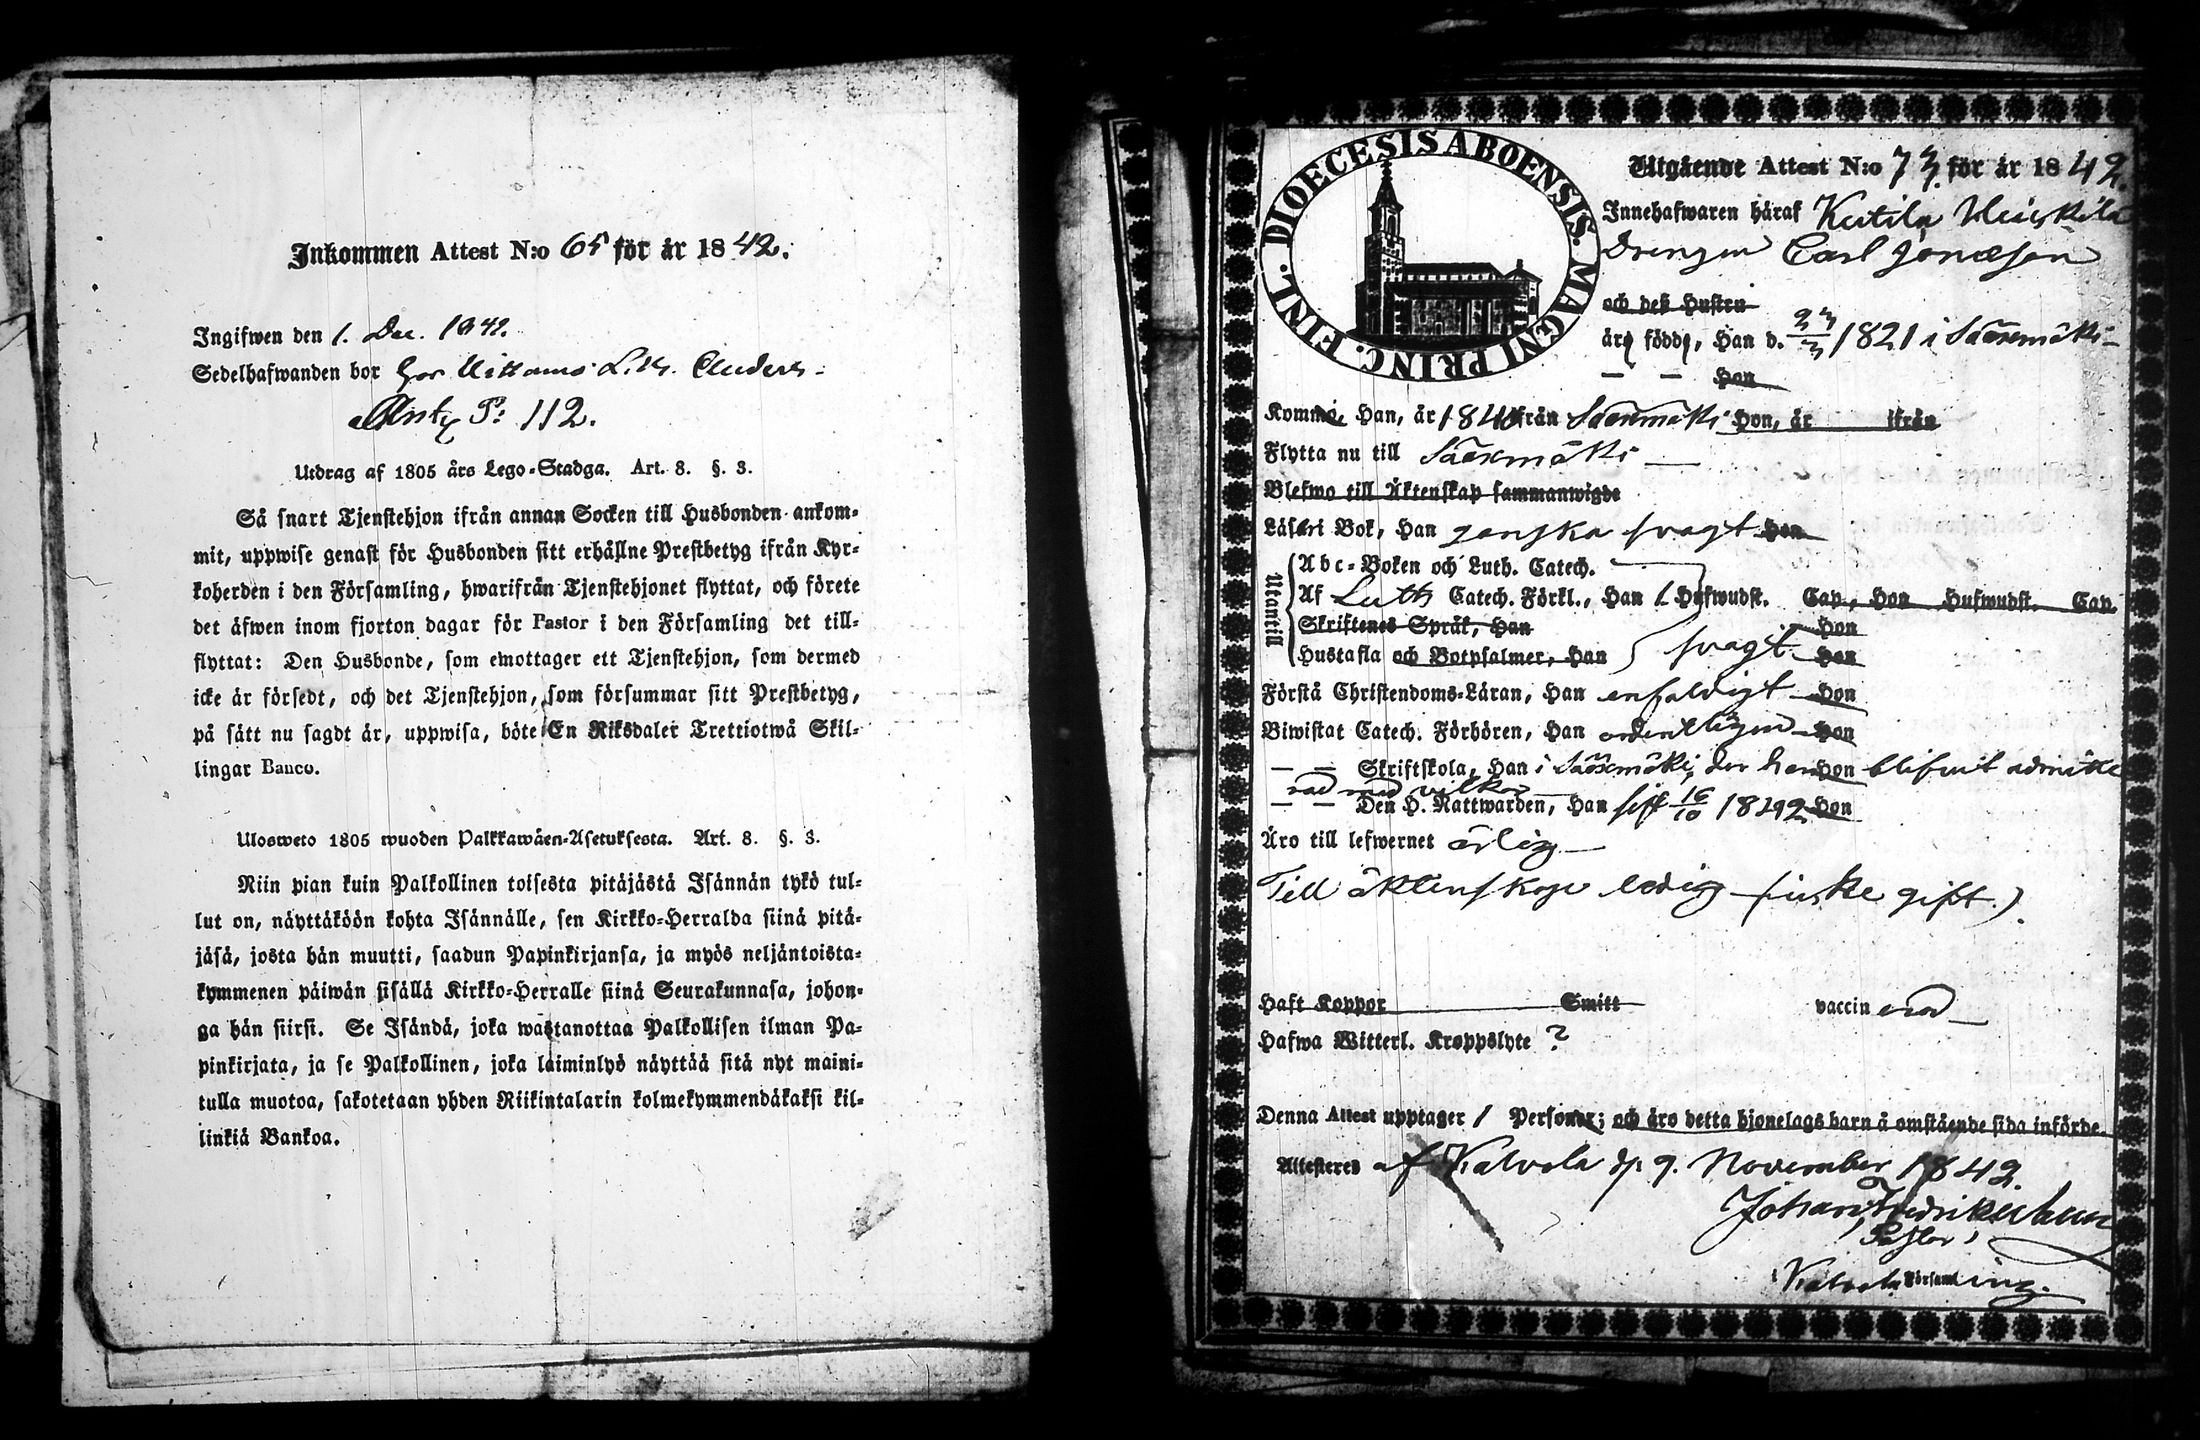 Inkommen Attest N:o 65 för år 1842.
Ingifwen den 1. Dec. 1842.
Sedelhafwanden bor
P: 112.
Utdrag af 1805 års Lego-Stadga. Art. 8. §. 3.
Så snart Tjenstehjon ifrån annan Socken till Husbonden ankom-
mit, uppwise genast för Husbonden sitt erhållne Prestbetyg ifrån Kyr-
koherden i den Församling, hwarifrån Tjenstehjonet flyttat, och förete
det äfwen inom fjorton dagar för Pastor i den Församling det till-
flyttat: Den Husbonde, som emottager ett Tjenstehjon, som dermed
icke är försedt, och det Tjenstehjon, som försummar sitt Prestbetyg,
på sätt nu sagdt är, uppwisa, böte En Riksdaler Trettiotwå Skil-
lingar Banco.
Ulosweto 1805 wuoden Palkkawäen-Asetuksesta. Art. 8. §. 3.
Niin pian kuin Palkollinen toisesta pitäjästä Isännän tykö tul-
lut on, näyttäköön kohta Isännälle, sen Kirkko-Herralda siinä pitä-
jäsä, josta hän muutti, saadun Papinkirjansa, ja myös neljäntoista-
kymmenen päiwän sisällä Kirkko-Herralle siinä Seurakunnasa, johon-
ga hän siirsi. Se Isändä, joka wastanottaa Palkollisen ilman Pa-
pinkirjata, ja se Palkollinen, joka laiminlyö näyttää sitä nyt maini-
tulla muotoa, sakotetaan yhden Riikintalarin kolmekymmendäkaksi kil-
linkiä Bankoa.
DIOECESIS ABOENSIS. MAGNI PRINC. FINL.
Utgående Attest N:o 73. för år 1842.
Innehafwaren häraf Kutila Heickilä
Drengen Carl Jonasson
och deß Hustru
äro födde, Han d. 23/3 1821 i Sääxmäki
— — Hon
Kommo, Han, år 1840 ifrån Sääxmäki Hon, år ifrån
Flytta nu till Sääxmäki —
Blefwo till Äktenskap sammanwigde
Läsa i Bok, Han ganska svagt Hon
Utantill
Abc-Boken och Luth. Catech.
Af Luth Catech. Förkl., Han 1 Hufwudst. Cap., Hon Hufwudst. Cap.
Skriftenes Språk, Han Hon
Hustafla och Botpsalmer, Han svagt Hon
Förstå Christendoms-Läran, Han enfaldigt Hon
Biwistat Catech. Förhören, Han ordentligen Hon
— — Skriftskola, Han i Sääxmäki, der han Hon blifwit admitte
rad med vilkor
— — Den H. Nattwarden, Han sist 16/10 1842. Hon
Äro till lefwernet ärlig —
Till äktenskap ledig (icke gift).
Haft Koppor Smitt vaccinerad —
Hafwa Witterl. Kroppslyte ?
Denna Attest upptager 1 Personer; och äro detta hjonelags barn å omstående sida införde.
Attesteras af Kalvola d. 9. November 1842.
Johan Fredrik
Pastor i
Kalvola Församling.